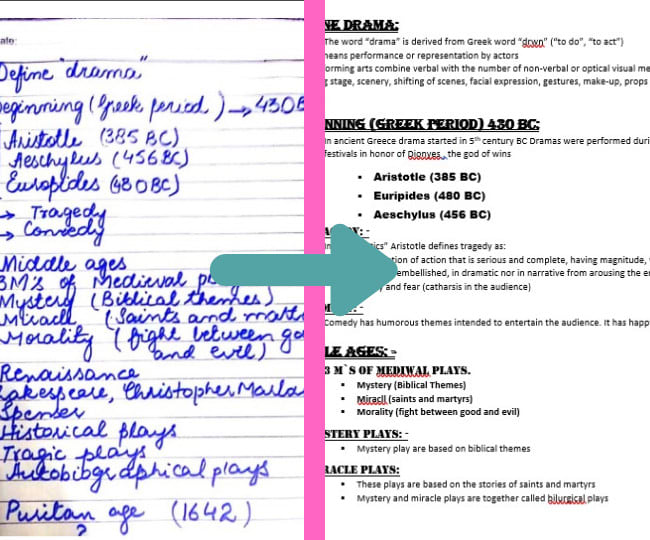 ate:
Define "drama"
Beginning (Greek period) → 430B
Aristotle (385 BC)
Aeschylus (456 BC)
Europides (480 BC)
→ Tragedy
→ Comedy
Middle ages
3M's of Medieval p
Mystery (Biblical themes)
Miracll (Saints and mart
Morality (fight between go
and evil)
Renaissance
akespeare, Christopher Marlo
Spenser
Historical plays
Tragic plays
Autobiographical plays
Puritan age (1642)
?
NE DRAMA:
The word "drama" is derived from Greek word "drwn" ("to do", "to act")
means performance or representation by actors
orming arts combine verbal with the number of non-verbal or optical visual me
stage, scenery, shifting of scenes, facial expression, gestures, make-up, props
NNING (GREEK PERIOD) 430 BC:
In ancient Greece drama started in 5th century BC Dramas were performed duri
festivals in honor of Dionyes, the god of wins
▪ Aristotle (385 BC)
▪ Euripides (480 BC)
▪ Aeschylus (456 BC)
tics" Aristotle defines tragedy as:
tion of action that is serious and complete, having magnitude,
embellished, in dramatic nor in narrative from arousing the en
y and fear (catharsis in the audience)
Comedy has humorous themes intended to entertain the audience. It has happ
LE AGES: -
3 M`S OF MEDIWAL PLAYS.
▪ Mystery (Biblical Themes)
▪ Miracll (saints and martyrs)
▪ Morality (fight between good and evil)
STERY PLAYS: -
▪ Mystery play are based on biblical themes
RACLE PLAYS:
▪ These plays are based on the stories of saints and martyrs
▪ Mystery and miracle plays are together called bilurgical plays